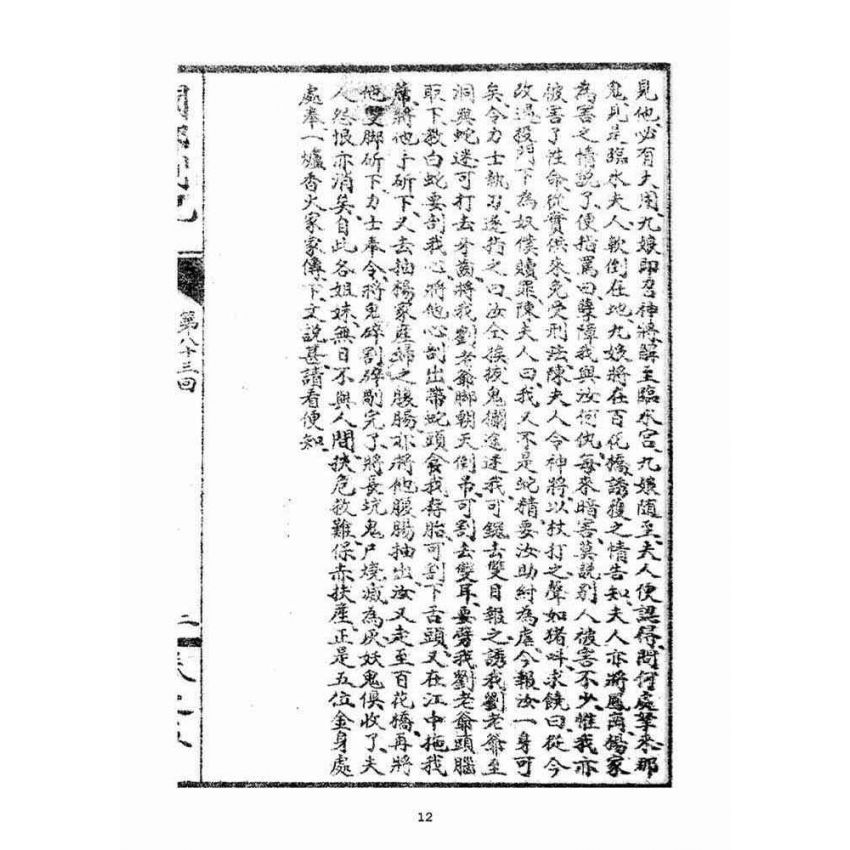 見他必有大用九娘即召神將解至臨水宮九娘隨至夫人便認得問何處拿來那
鬼見是臨水夫人軟倒在地九娘將在百花橋誘獲之情告知夫人亦將楊家
為害之情說了便指罵曰孽障我與汝何仇每來暗害莫說別人被害不少惟我亦
被害了性命從實供來免受刑法陳夫人令神將以杖打之聲如猪叫求饒曰從今
改過投門下為奴僕贖罪陳夫人曰我又不是蛇精要汝助紂為虐今報汝一身可
矣令力士執刀遂指之曰汝全挨拔鬼攔途迷我可鎚去雙目報之誘我劉老爺至
洞與蛇迷可打去牙齒將我劉老爺脚朝天倒吊可割去雙耳要劈我劉老爺頭腦
取下教白蛇要剖我心將他心剖出帶蛇頭食我孕胎可割下舌頭又在江中拖我
將他手斫下又去抽楊家產婦之腹腸亦將他腹腸抽出汝又走至百花橋再將
他雙脚斫下力士奉令將鬼碎割碎剮完了將長坑鬼尸燒滅為灰妖鬼俱收了夫
人怨恨亦消矣自此各姐妹無日不與人間扶危救難保赤扶產正是五位金身處
處奉一爐香火家家傳下文說甚讀看便知
第八十三回
二
12